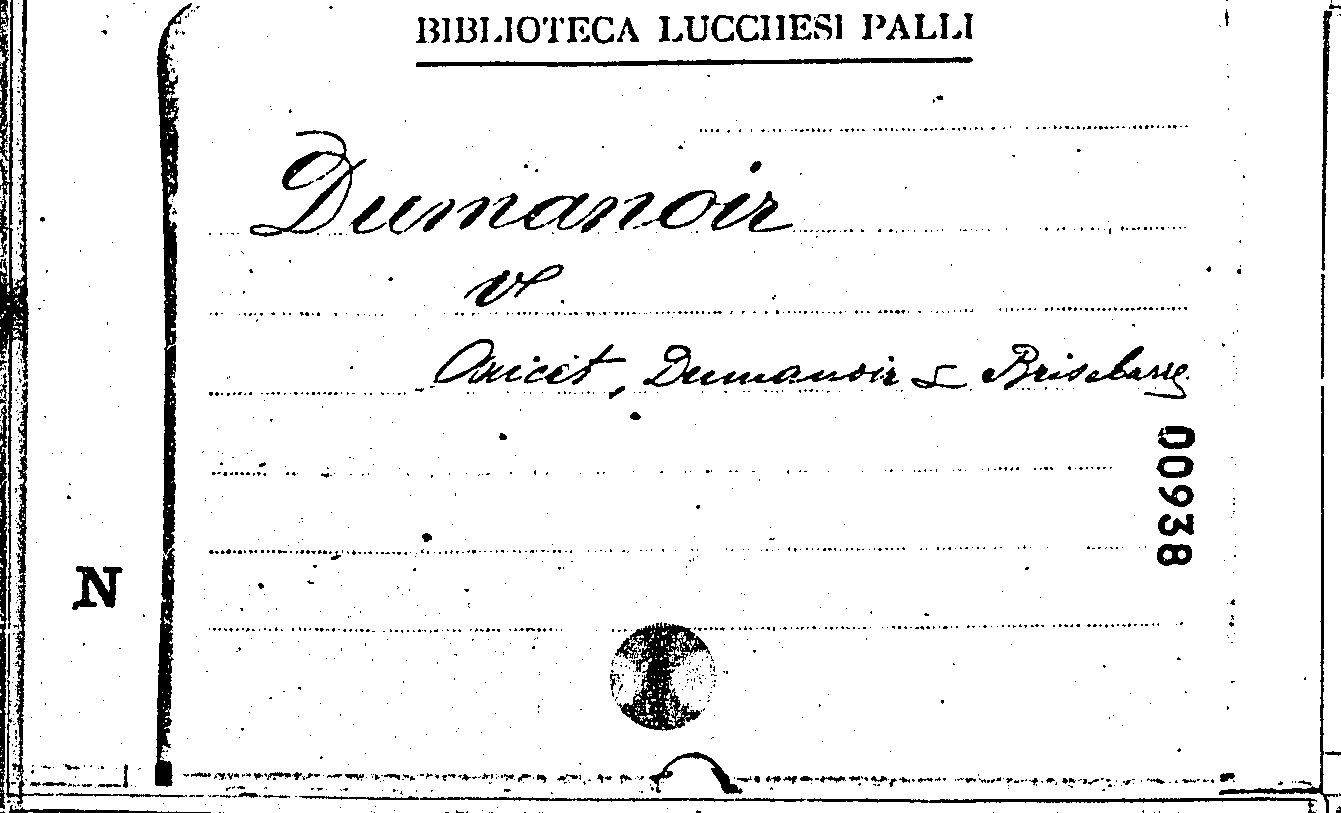 BIBLIOTECA LUCCHESI PALLI
Dumanoir
v
Anicet, Dumanoir & Brisebarre
00938
N